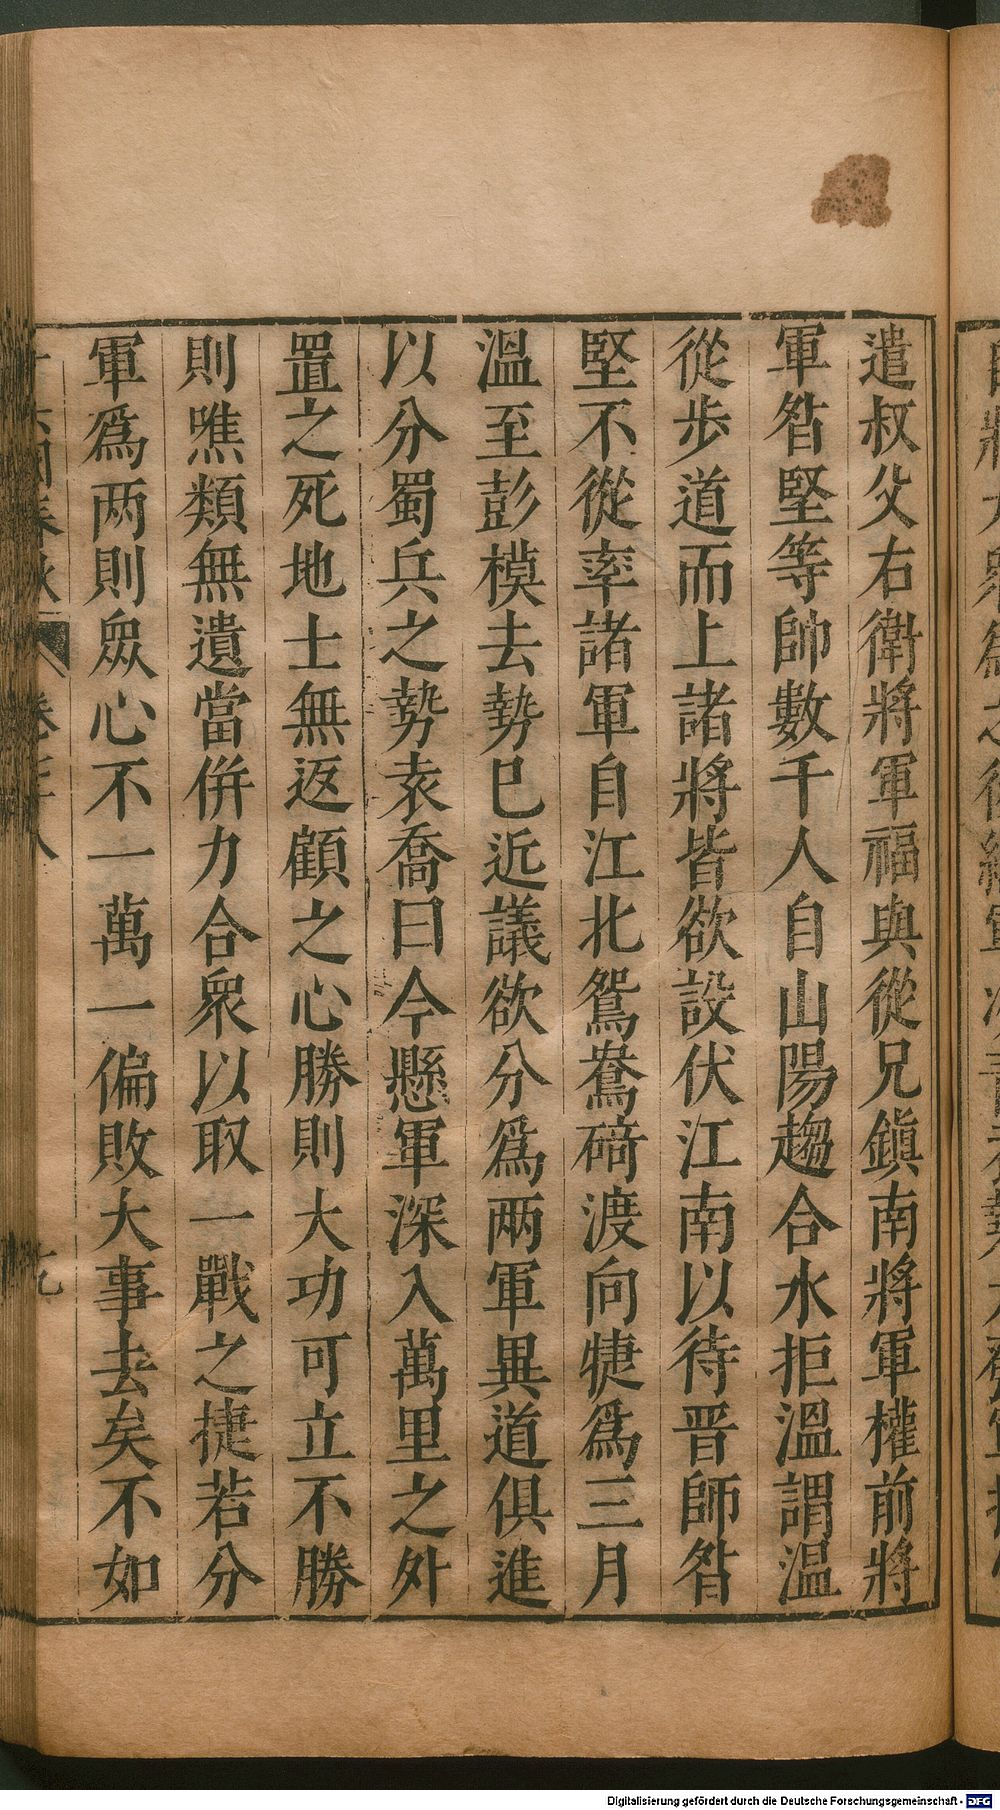 遣叔父右衛將軍福與從兄鎭南將軍權前將
軍昝堅等帥數千人自山陽趨合水拒溫謂溫
從步道而上諸將皆欲設伏江南以待晋師昝
堅不從率諸軍自江北鴛鴦碕渡向㨗爲三月
溫至彭模去勢巳近議欲分爲兩軍異道俱進
以分蜀兵之勢袁喬曰今懸軍深入萬里之外
置之死地士無返顧之心勝則大功可立不勝
則噍類無遺當併力合衆以取一戰之捷若分
軍爲两則眾心不一萬一偏敗大事去矣不如
十六國春秋 卷七十八
Digitalisierung gefördert durch die Deutsche Forschungsgemeinschaft - DFG